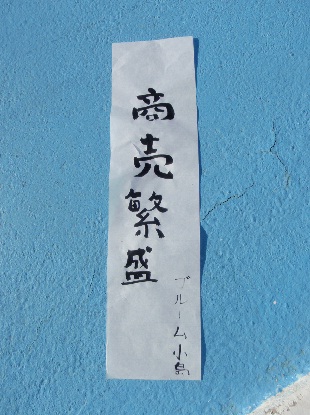 商売繁盛
ブルーム小島